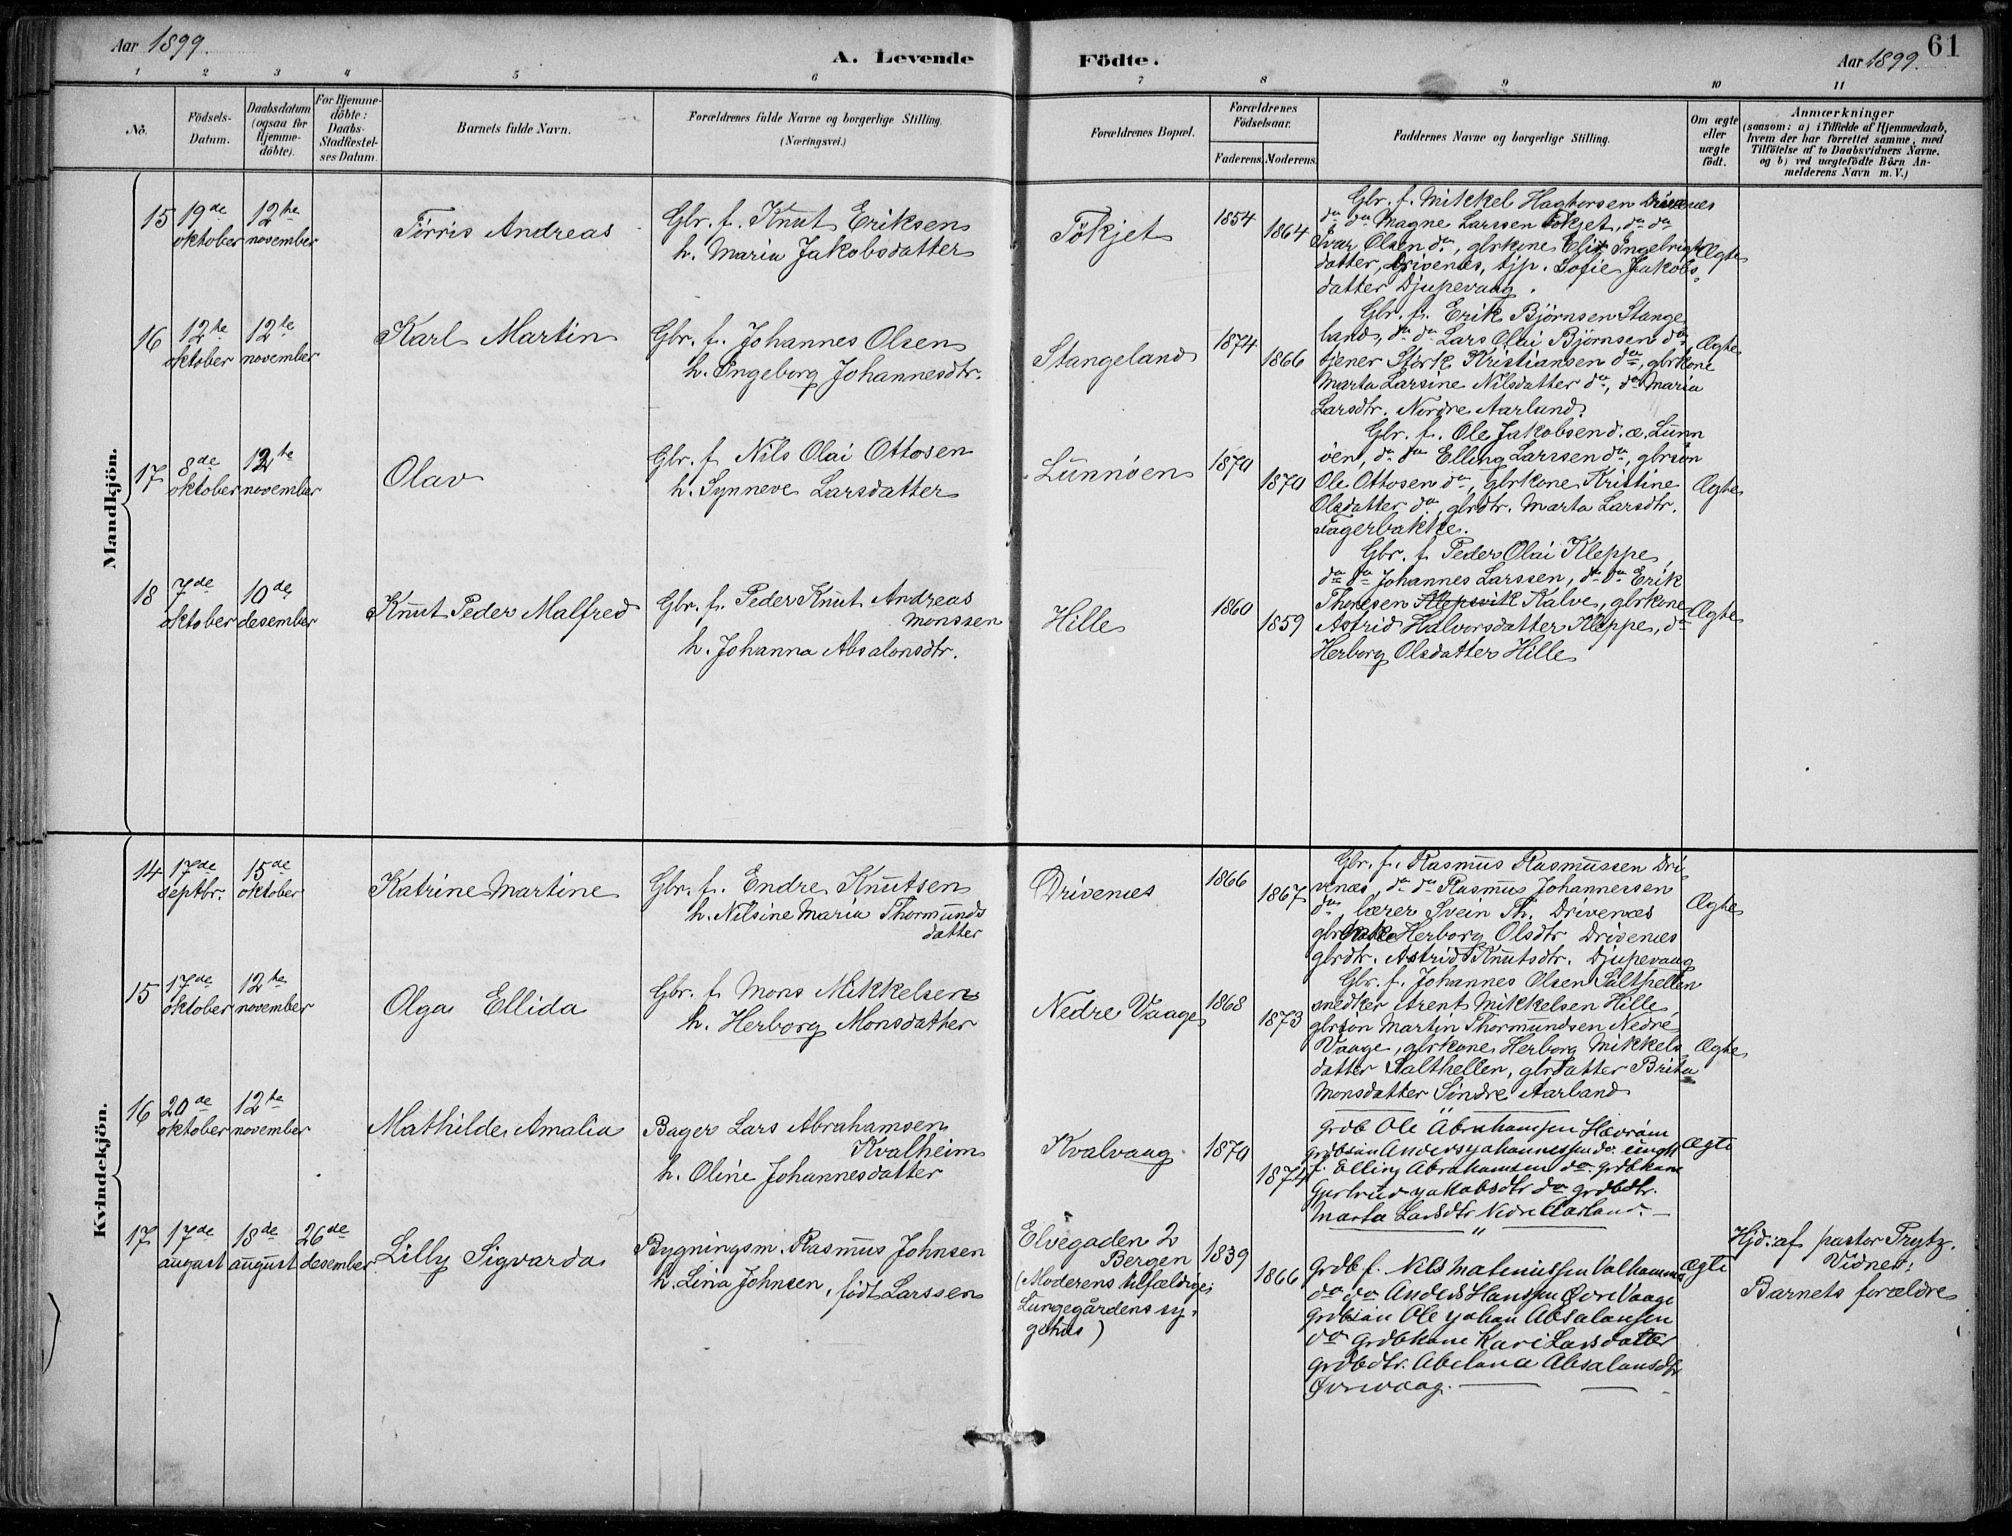 Aar 1899.
A. Levende Födte.
Aar 1899.
61
1 2 3 4 5 6 7 8 9 10 11
No.
Födsels-
Datum.
Daabsdatum
(ogsaa for
Hjemme-
döbte).
For Hjemme-
döbte:
Daabs-
Stadfæstel-
ses Datum.
Barnets fulde Navn.
Forældrenes fulde Navne og borgerlige Stilling.
(Næringsvei.)
Forældrenes Bopæl.
Forældrenes
Födselsaar.
Faderens. Moderens.
Faddernes Navne og borgerlige Stilling.
Om ægte
eller
uægte
født.
Anmærkninger
(saasom: a) i Tilfælde af Hjemmedaab,
hvem der har forrettet samme, med
Tilföielse af to Daabsvidners Navne.
og b) ved uægtefödte Börn An-
melderens Navn m. V.)
Mandkjön.
15
19de
oktober
12te
november
Tørris Andreas
Gbr. f. Knut Eriksen
h. Maria Jakobsdatter
Tökjet
1854
1864
Gbr. f. Mikkel Hagtorsen Drivenes
do do Magne Larssen Tökjet, do do
Ivar Olsen do, gbrkone Elis Ingebrigts
datter, Drivenes, tjp. Sofie Jakobs-
datter Djupevaag.
Ægte
16
12te
oktober
12te
november
Karl Martin
Gbr. f. Johannes Olsen
h. Ingeborg Johannesdtr.
Stangeland
1874
1866
Gbr. f. Erik Bjørnsen Stange
land, do do Lars Olai Bjørnsen do,
tjener Størk Kristiansen do, gbrkone
Marta Larsine Nilsdatter do, do Maria
Larsdtr. Nordre Aarland.
Ægte
17
8de
oktober
12te
november
Olav
Gbr. f. Nils Olai Ottosen
h. Synneve Larsdatter
Lunnøen
1870
1870
Gbr. f. Ole Jakobsen d. æ. Lunn
øen, do do Elling Larssen do, gbrsøn
Ole Ottosen do, gbrkone Kristine
Olsdatter do, gbrdtr. Marta Larsdtr.
Fagerbakke.
Ægte
18
7de
oktober
10de
desember
Knut Peder Malfred
Gbr. f. Peder Knut Andreas
Monssen
h. Johanna Absalonsdtr.
Hille
1860
1859
Gbr. f. Peder Olai Kleppe,
do do Johannes Larssen, do do Erik
Thoresen Klepsvik Kalve, gbrkone
Astrid Halvorsdatter Kleppe, do
Herborg Olsdatter Hille
Ægte
Kvindekjön.
14
17de
septbr.
15de
oktober
Katrine Martine
Gbr. f. Endre Knutsen
h. Nilsine Maria Thormunds
datter
Drivenes
1866
1867
Gbr. f. Rasmus Rasmussen Dri-
venes, do do Rasmus Johannessen
do, lærer Svein Th. Drivenes
gbrkone Herborg Olsdtr Drivenes
gbrdtr. Astrid Knutsdtr. Djupevaag
Ægte
15
17de
oktober
12te
november
Olga Ellida
Gbr. f. Mons Mikkelsen
h. Herborg Monsdatter
Nedre Vaage
1868
1873
Gbr. f. Johannes Olsen Salthellen
snedker Arent Mikkelsen Hille,
gbrsøn Martin Thormundsen Nedre
Vaage, gbrkone Herborg Mikkels
datter Salthellen, gbrdatter Brita
Monsdatter Søndre Aarland
Ægte
16
20de
oktober
12te
november
Mathilde Amalia
Bager Lars Abrahamsen
Kvalheim
h. Oline Johannesdatter
Kvalvaag
1870
1874
Grdb Ole Abrahamsen Hevrøin
grdbsøn Anders Johannessen do. ungk
f. Elling Abrahamsen do. grdbkone
Gjertrud Jakobsdtr do grdbdtr.
Marta Larsdtr Nedre Aarland.
Ægte
17
17de
august
18de
august
26de
desember
Lilly Sigvarda
Bygningsm. Rasmus Johnsen
h. Lina Johnsen, født Larssen
Elvegaden 2
Bergen
(Moderens tilfældige:
Lungegårdens sy-
gehus)
1839
1866
Grdb f. Nils Matiassen Valhammer
do do Anders Hanssen Øvre Vaage
grdbsøn Ole Johan Absalonsen
do grdbkone Kari Larsdatter
grdbdtr. Abelona Absalonsdtr
Øvrevaag.
Ægte
Hjd: af pastor Prytz.
Vidner:
Barnets forældre